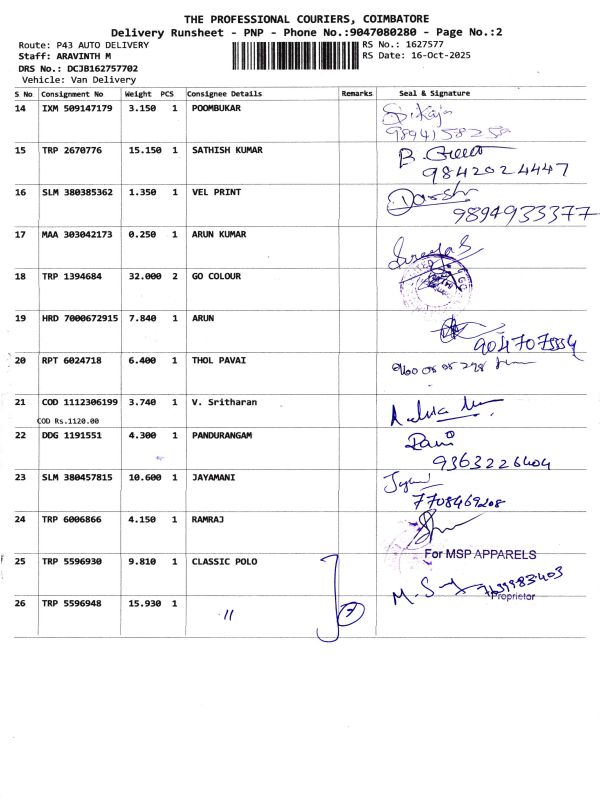 THE PROFESSIONAL COURIERS, COIMBATORE
Delivery Runsheet - PNP - Phone No.:9047080280 - Page No.:2
Route: P43 AUTO DELIVERY
RS No.: 1627577
Staff: ARAVINTH M
RS Date: 16-Oct-2025
DRS No.: DCJB162757702
Vehicle: Van Delivery
S No Consignment No Weight PCS Consignee Details Remarks Seal & Signature
14 IXM 509147179 3.150 1 POOMBUKAR
9894158258
15 TRP 2670776 15.150 1 SATHISH KUMAR
9842024447
16 SLM 380385362 1.350 1 VEL PRINT
9894933377
17 MAA 303042173 0.250 1 ARUN KUMAR
18 TRP 1394684 32.000 2 GO COLOUR
19 HRD 7000672915 7.840 1 ARUN
20 RPT 6024718 6.400 1 THOL PAVAI
21 COD 1112306199 3.740 1 V. Sritharan
COD Rs.1120.00
22 DDG 1191551 4.300 1 PANDURANGAM
Ravi
9363226404
23 SLM 380457815 10.600 1 JAYAMANI
7708469208
24 TRP 6006866 4.150 1 RAMRAJ
For MSP APPARELS
25 TRP 5596930 9.810 1 CLASSIC POLO
7639983403
Proprietor
26 TRP 5596948 15.930 1 〃
7